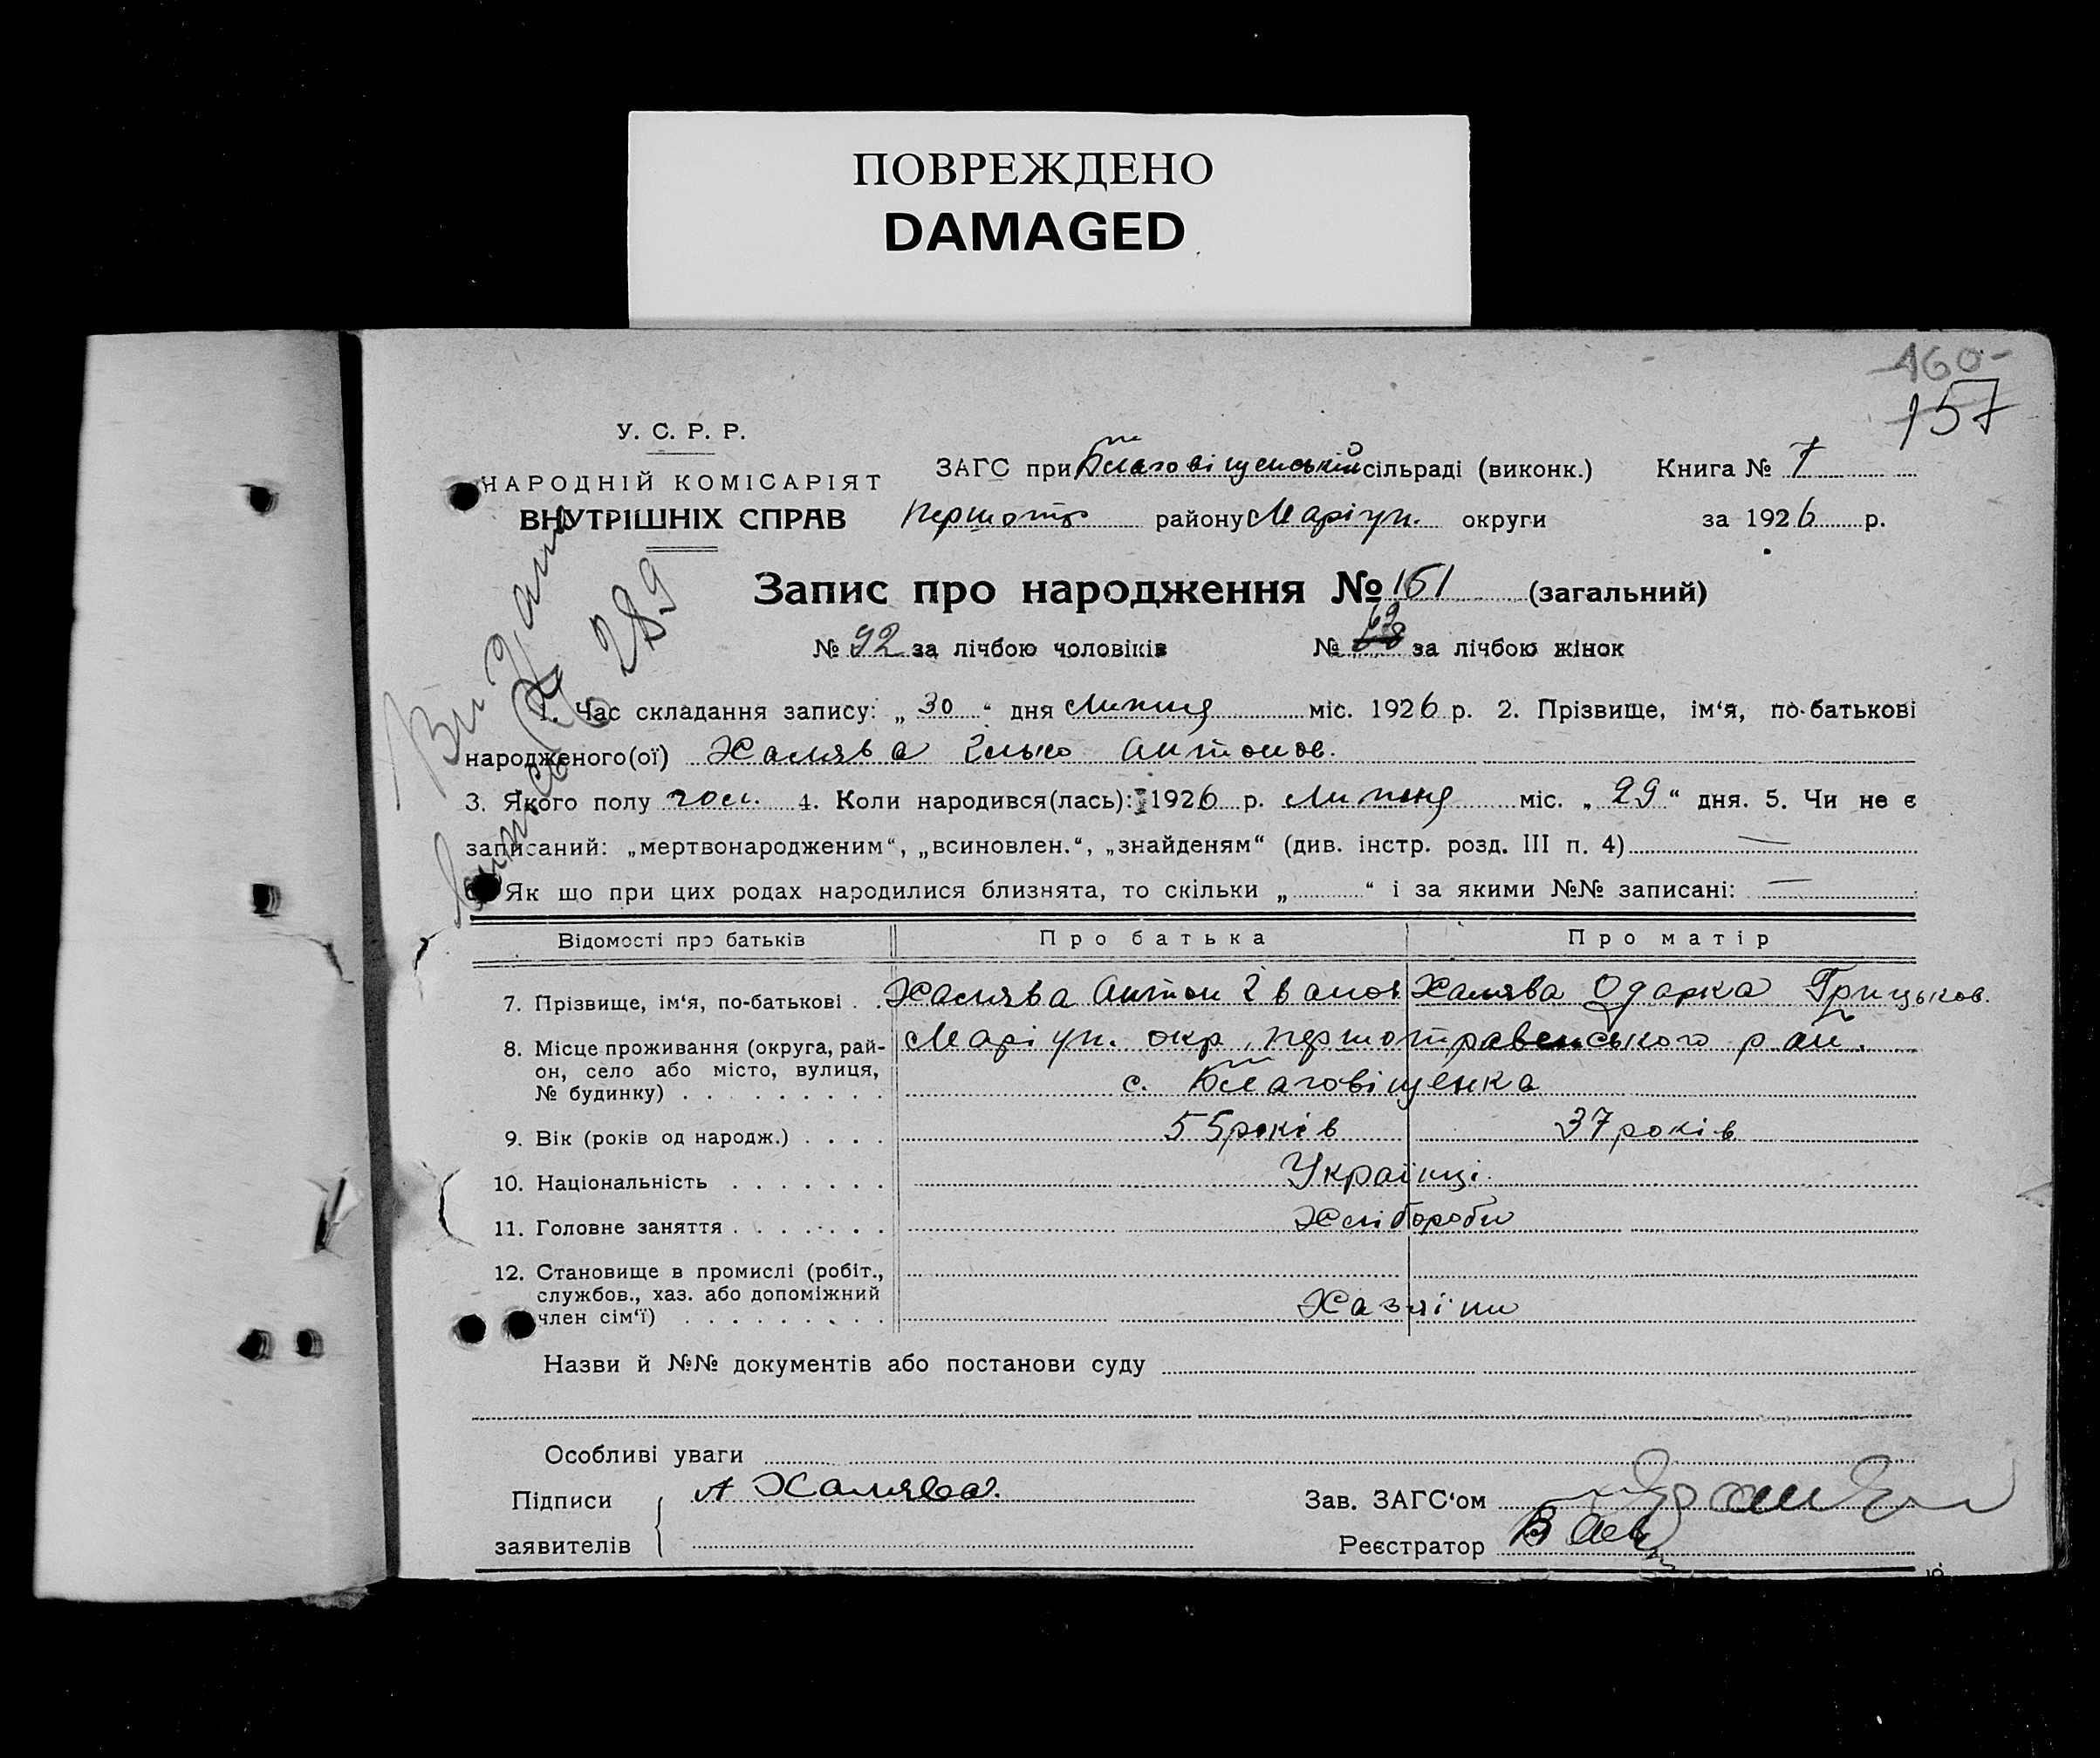 ПОВРЕЖДЕНО
DAMAGED
160
157
У. С. Р. Р.
НАРОДНІЙ КОМІСАРІЯТ
ВНУТРІШНІХ СПРАВ
ЗАГС при Благовіщенській сільраді (виконк.) Книга № 7
Першотр району Маріуп. округи за 1926 р.
Запис про народження № 161 (загальний)
№ 92 за лічбою чоловіків № 69 за лічбою жінок
1. Час складання запису: „ 30 “ дня Липня міс. 1926 р. 2. Прізвище, ім‘я, по-батькові
народженого(ої) Халява Ілько Антонов.
3. Якого полу чол. 4. Коли народився(лась): 1926 р. Липня міс. „ 29 “ дня. 5. Чи не є
записаний: „мертвонародженим“, „всиновлен.“, „знайденям“ (див. інстр. розд. III п. 4) —
Як що при цих родах народилися близнята, то скільки „ “ і за якими №№ записані: —
Відомості про батьків Про батька Про матір
7. Прізвище, ім‘я, по-батькові . . Халява Антон Іванов Халява Одарка Грицьков.
8. Місце проживання (округа, рай- Маріуп. окр. першотравенського рай.
он, село або місто, вулиця,
№ будинку) . . . . . . . . . с. Благовіщенка
9. Вік (років од народж.) . . . . 55 років 37 років
10. Національність . . . . . . . Українці.
11. Головне заняття . . . . . . . Хлібороби
12. Становище в промислі (робіт.,
службов., хаз. або допоміжний
член сім‘ї) . . . . . . . . . Хазяіни
Назви й №№ документів або постанови суду
Особливі уваги
Підписи А Халява. Зав. ЗАГС‘ом
заявителів Реєстратор